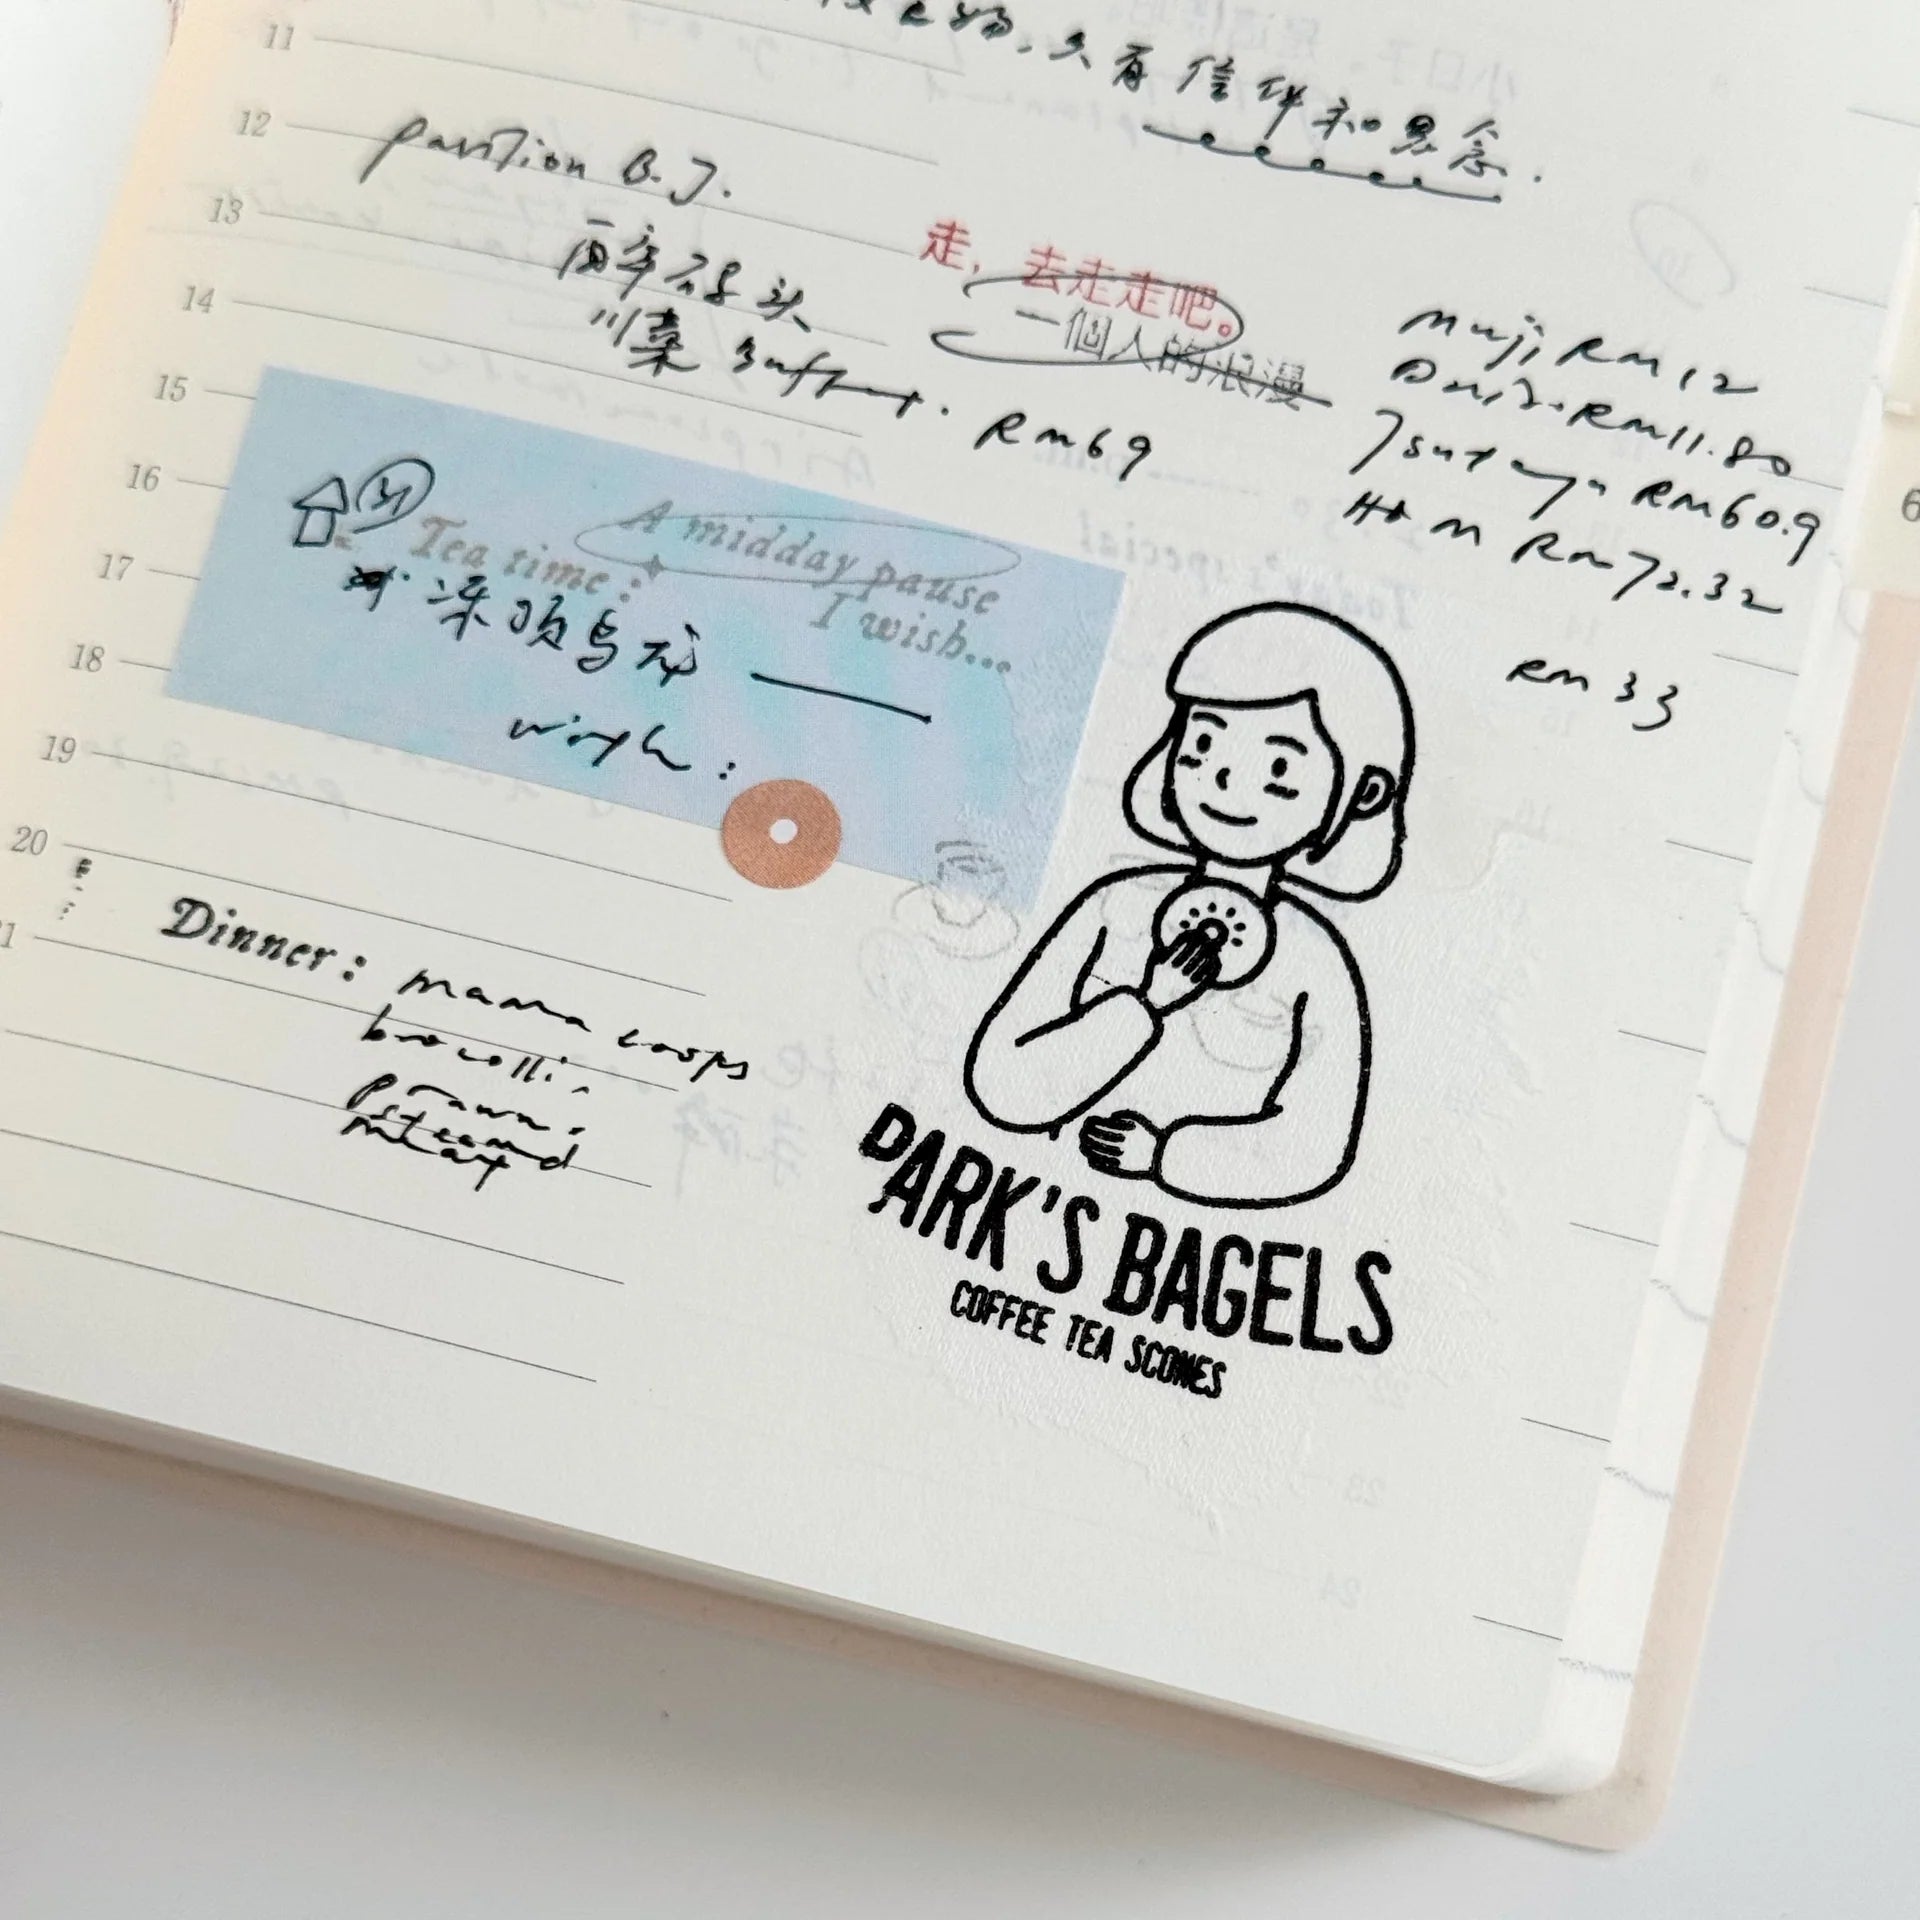 只有信件和思念.
11
12
pavilion B.J.
13
醉码头
走，去走走吧。
一個人的浪漫
14
川菜 RM69
muji RM12
RM11.80
Tsutaya RM60.9
H&M RM72.32
RM33
15
16
A midday pause
Tea time:
I wish...
17
冻顶乌龙
18
19
20
Dinner: mama
brocolli
Prawn
steamed
meat
PARK'S BAGELS
COFFEE TEA SCONES
6